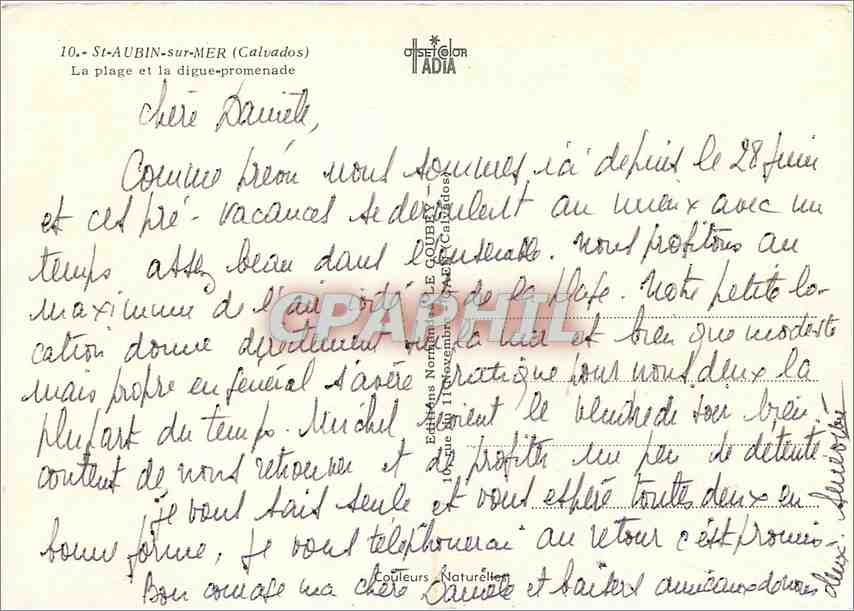 10.- St-AUBIN-sur-MER (Calvados)
La plage et la digue-promenade
OFFSETCOLOR
IADIA
Chère Danièle,
Comme prévu nous sommes ici depuis le 28 juin
et ces pré-vacances se déroulent au mieux avec un
temps assez beau dans l'ensemble. Nous profitons au
maximum de l'air iodé et de la plage. Notre petite lo-
cation donne directement sur la mer et bien que modeste
mais propre en général s'avère pratique pour nous deux la
plupart du temps. Michel vient le vendredi soir bien
content de nous retrouver et de profiter un peu de détente.
Je vous sais seule et vous espère toutes deux en
bonne forme, je vous téléphonerai au retour c'est promis-
Bon courage ma chère Danièle et baisers amicaux de nous
deux.
Editions Normandes LE GOUBEY -
10, rue du 11 Novembre, CAEN (Calvados)
Couleurs Naturelles
CPAPHIL